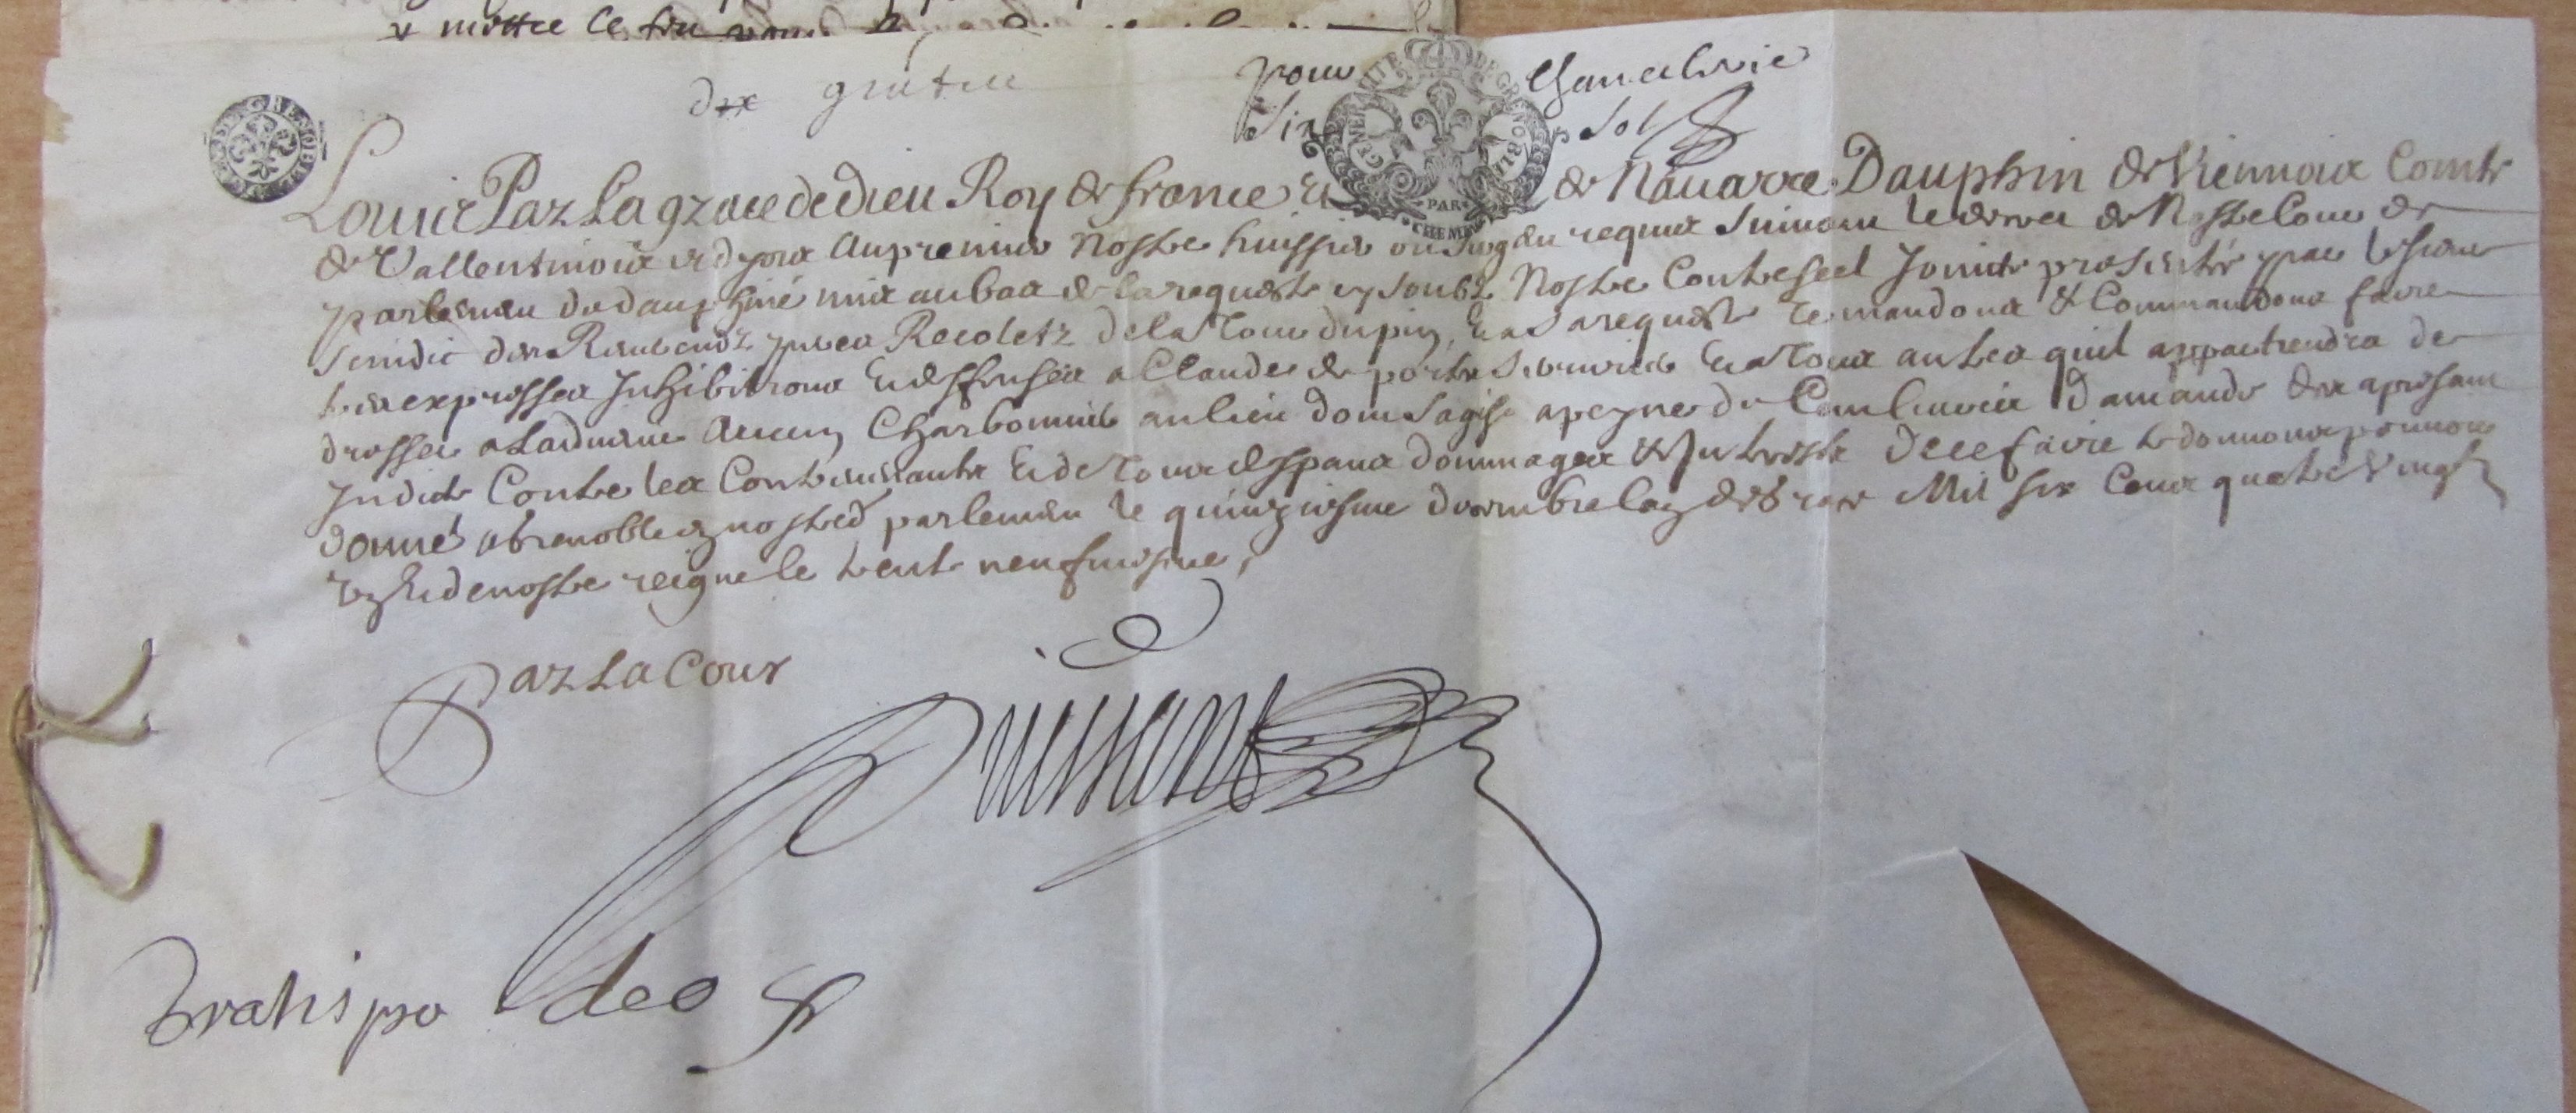 y mettre le feu
dix
pour Chancelerie
Six Sols
GENERALITE DE GRENOBLE
PARCHEMIN
Louis Par la grace de dieu Roy de france Et de Nauarre Dauphin de Viennois Comte
de Vallentinois et dyois Au premier Nostre huissier ou sergen requis suiuan le decret de Nostre Cour de
parlemen de dauphiné mis au bas de la requeste cy soubz Nostre Contreseel Jointe presentée par le sieur
Sindic des Reuerendz peres Recoletz de la Tour du pin, Et a Sa requeste Te mandons & Commandons faire
tres expresses Inhibitions Et deffenses a Claude de porte Et a Tous autres quil appartiendra de
dresser a Laduenir Aucun Charbonnier au lieu dont Sagist a peyne de Damande des a presant
Indicte Contre les Contreuenants Et de Tous despans dommages & Interestz De ce faire te donnons pouuoir
donné a Grenoble en nostred parlemen le quinziesme Mil six Cens quatre Vingt
Vn Et de nostre reigne le trente neufuiesme,
Par La Cour
Gratis pro deo